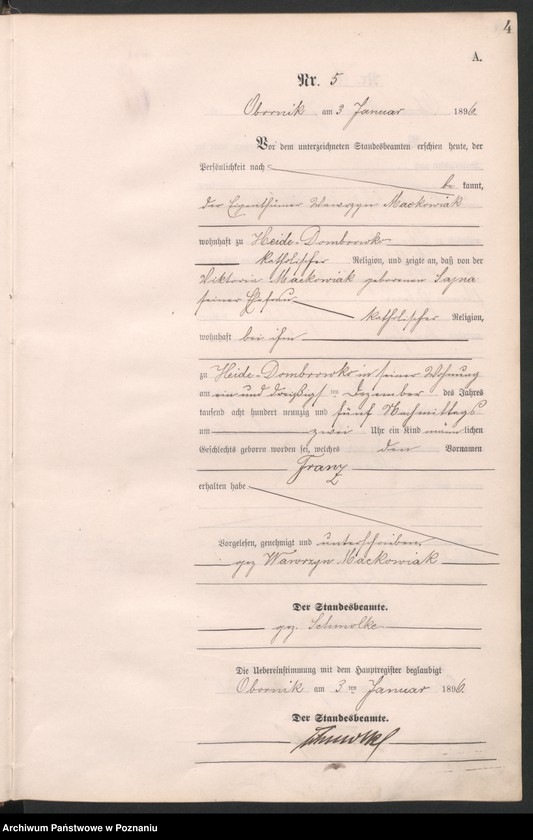 4
A.
Nr. 5
Obornik am 3 Januar 1896
Vor dem unterzeichneten Standesbeamten erschien heute, der
Persönlichkeit nach
be kannt,
der Eigenthümer Wawrzyn Mackowiak
wohnhaft zu Heide-Dombrowko
katholischer Religion, und zeigte an, daß von der
Wiktoria Mackowiak geborenen Sajna
seiner Ehefrau
katholischer Religion,
wohnhaft bei ihm
zu Heide-Dombrowko in seiner Wohnung
am ein und dreißigsten Dezember des Jahres
tausend acht hundert neunzig und fünf Nachmittags
um zwei Uhr ein Kind männlichen
Geschlechts geboren worden sei, welches den Vornamen
Franz
erhalten habe
Vorgelesen, genehmigt und unterschrieben.
gez Wawrzyn Mackowiak
Der Standesbeamte.
gez. Schmolke
Die Uebereinstimmung mit dem Hauptregister beglaubigt
Obornik am 3 ten Januar 1896.
Der Standesbeamte.
Schmolke
Archiwum Państwowe w Poznaniu